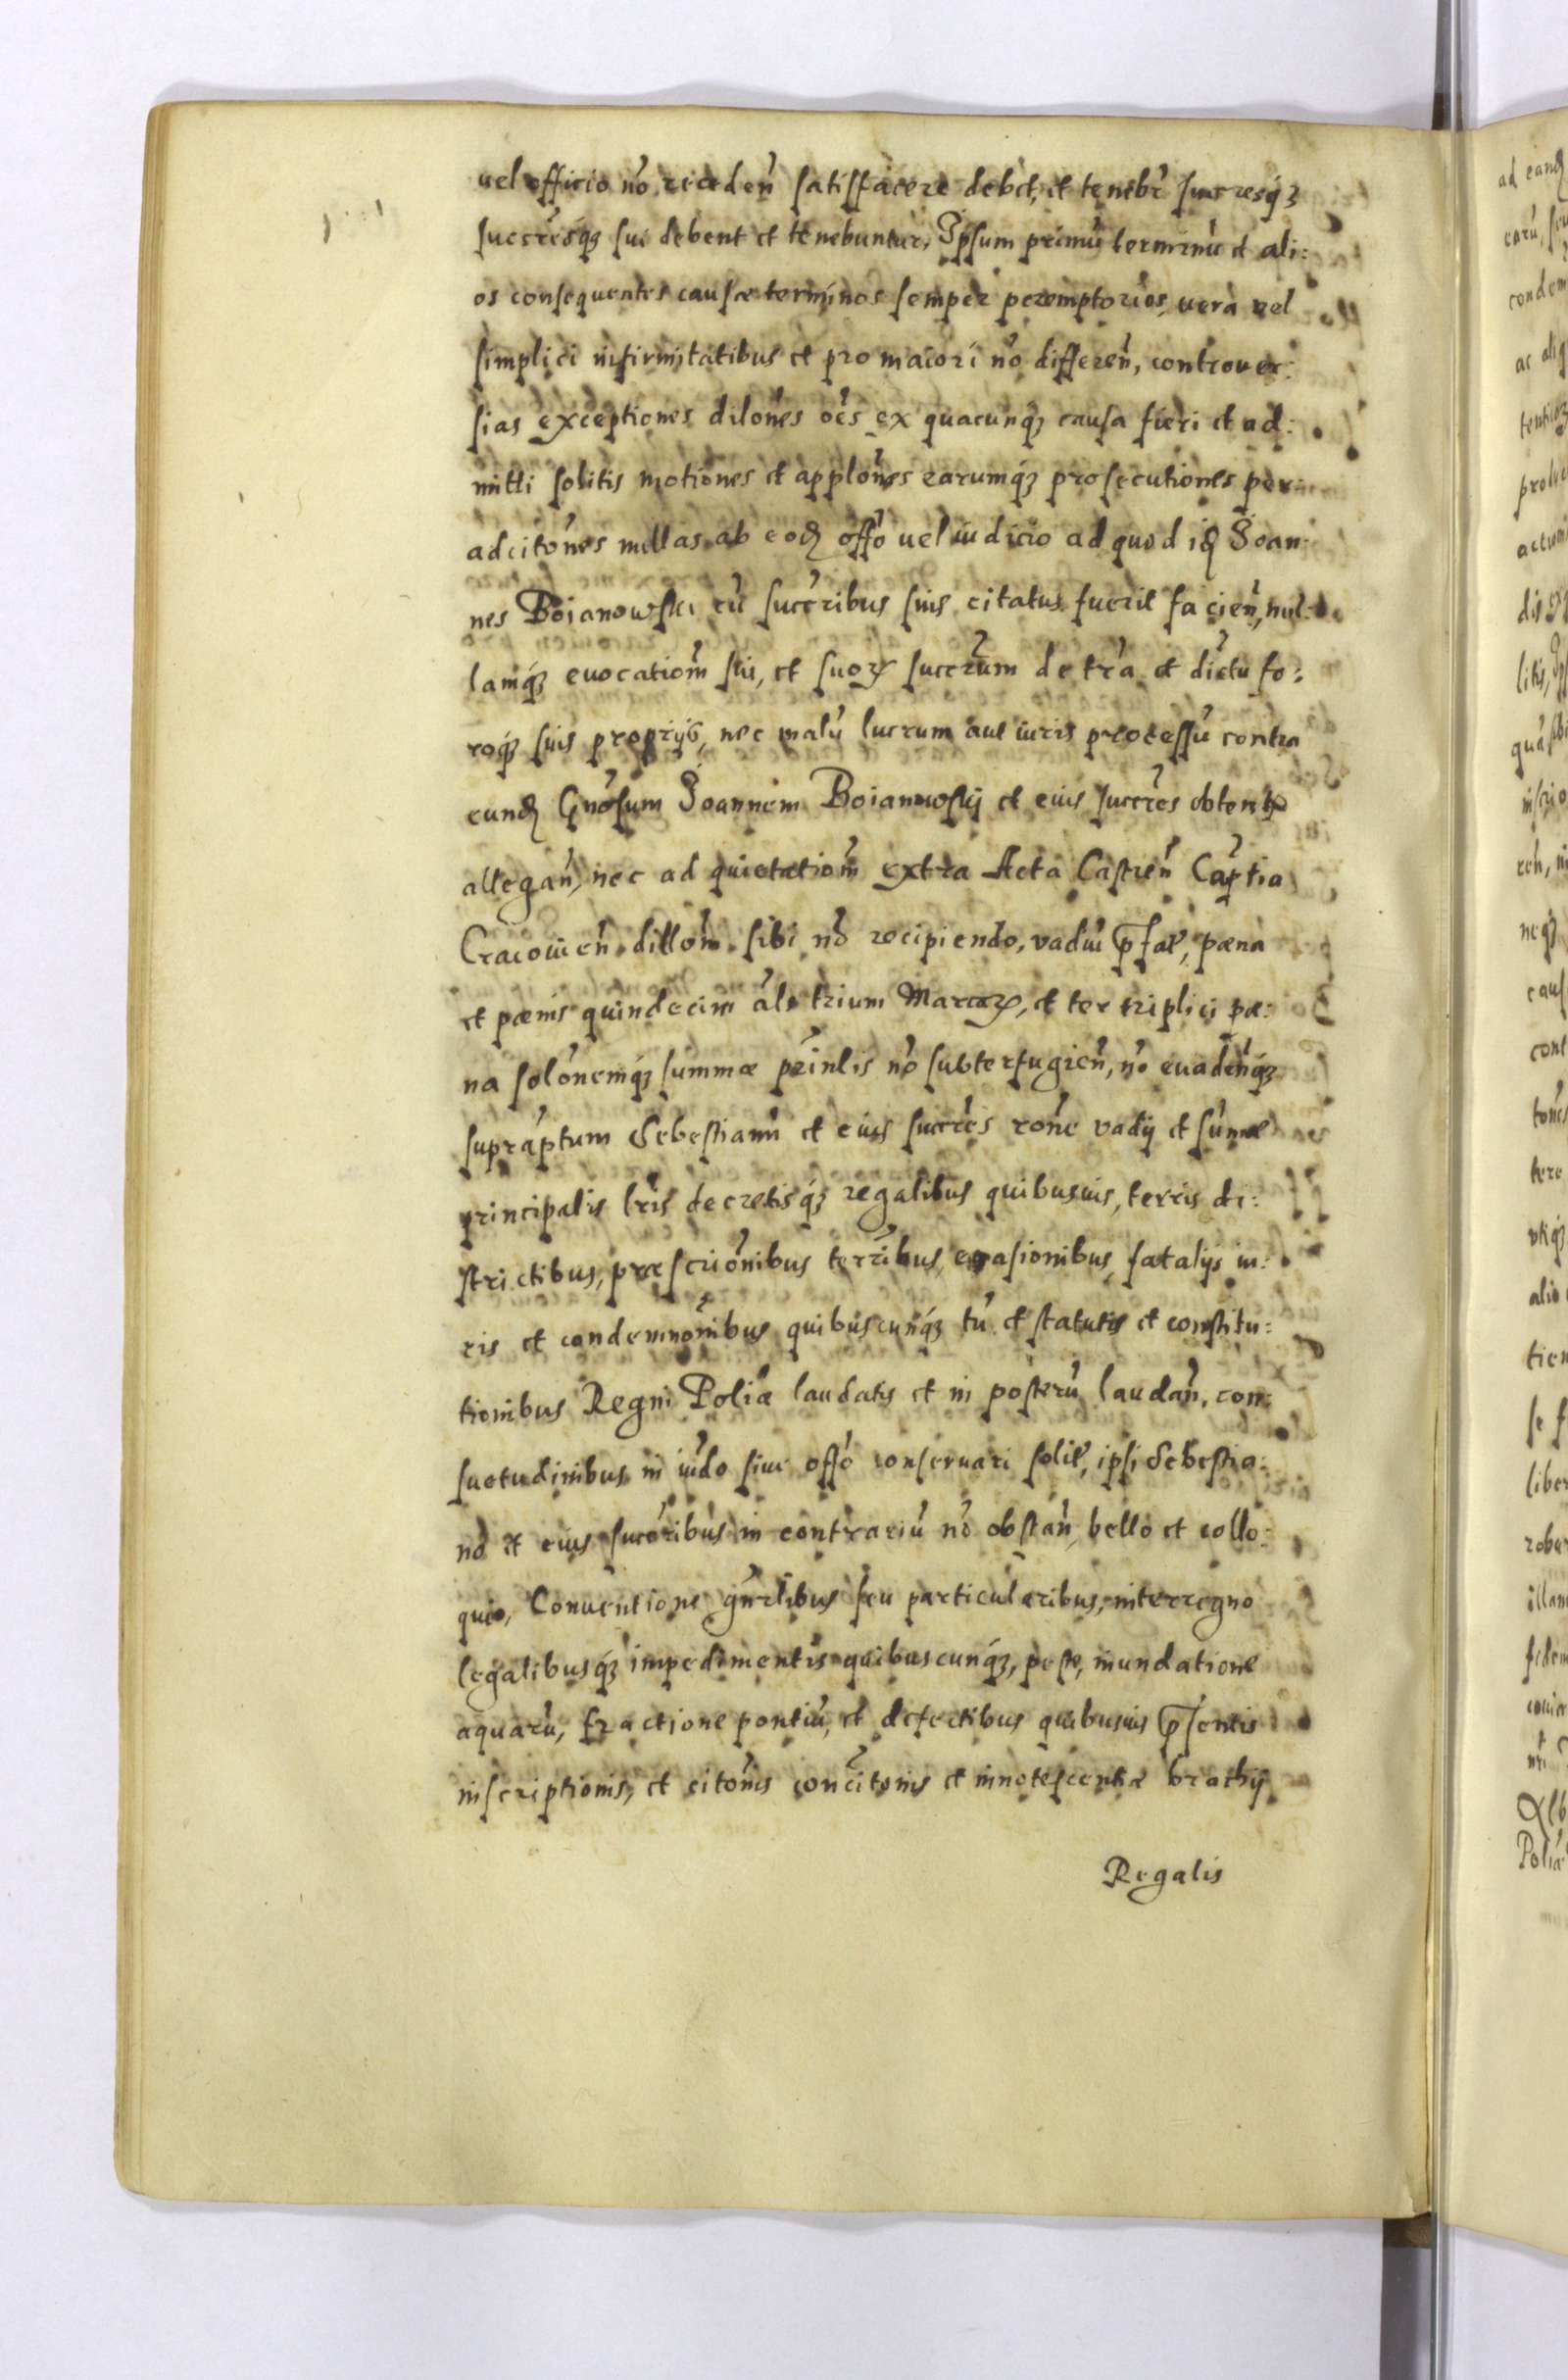 uel officio nõ receden̄ satisfacere debet, et tenebr̃ succresq́ꝫ
succrẽsq́ꝫ sui debent et tenebuntur, Ipsum primũ terminũ et ali:
os consequentes causæ terminos semper peremptorios, vera vel
simplici infirmitatibus et pro maiori nõ differen̄, controuer:
sias exceptiones dilõnes oẽs ex quacunq́ꝫ causa fieri et ad:
mitti solitis motiones et applõnes earumq́ꝫ prosecutiones per
adcitõnes nullas ab eođ offo uel iudicio ad quod iđ Ioan:
nes Boianowski cũ succribus suis citatus fuerit facien̄, nul:
lamq́ꝫ euocatiom̃ sui, et suoꝝ succrum de tr̃a et dictu fo:
roq́ꝫ suis proprijs, nec malũ lucrum aut iuris processũ contra
eunđ Gnõsum Ioannem Boianwoskij et eius succres obtent
allegan̄, nec ad quietatiom̃ extra Acta Castren̄ Capt̃ia
Cracouien̄ dillom̃ sibi nõ recipiendo, vadiũ p̃fat̃, pæna
et pænis quindecim al̃s trium Marcaꝝ, et ter triplici pæ:
na solõnemq́ꝫ summæ prĩnlis nõ subterfugien̄, nõ euaden̄q́ꝫ
suprap̃tum Sebestianũ et eius succres rõne vadij et sum̃æ
principalis lr̃is decretisq́ꝫ regalibus quibusuis, terris di:
strictibus, præscriõnibus terrĩbus euasionibus fatalijs iu:
ris et condemnõnibus quibuscunq́ꝫ tũ et statutis et constitu:
tionibus Regni Poliæ laudatis et in posterũ laudan̄, con:
suetudinibus in iud̃o siue offo conseruari solit̃, ipsi Sebestia:
no et eius succribus in contrariũ nõ obstan̄, bello et collo:
quio, Conuentione gñrlibus seu particularibus, interregno
legalibusq́ꝫ impedimentis quibuscunq́ꝫ, peste, inundatione
aquarũ, fractione pontiũ, et defectibus quibusuis p̃sentis
inscriptionis, et citõnis concitõnis et innotescentiæ brachij
Regalis